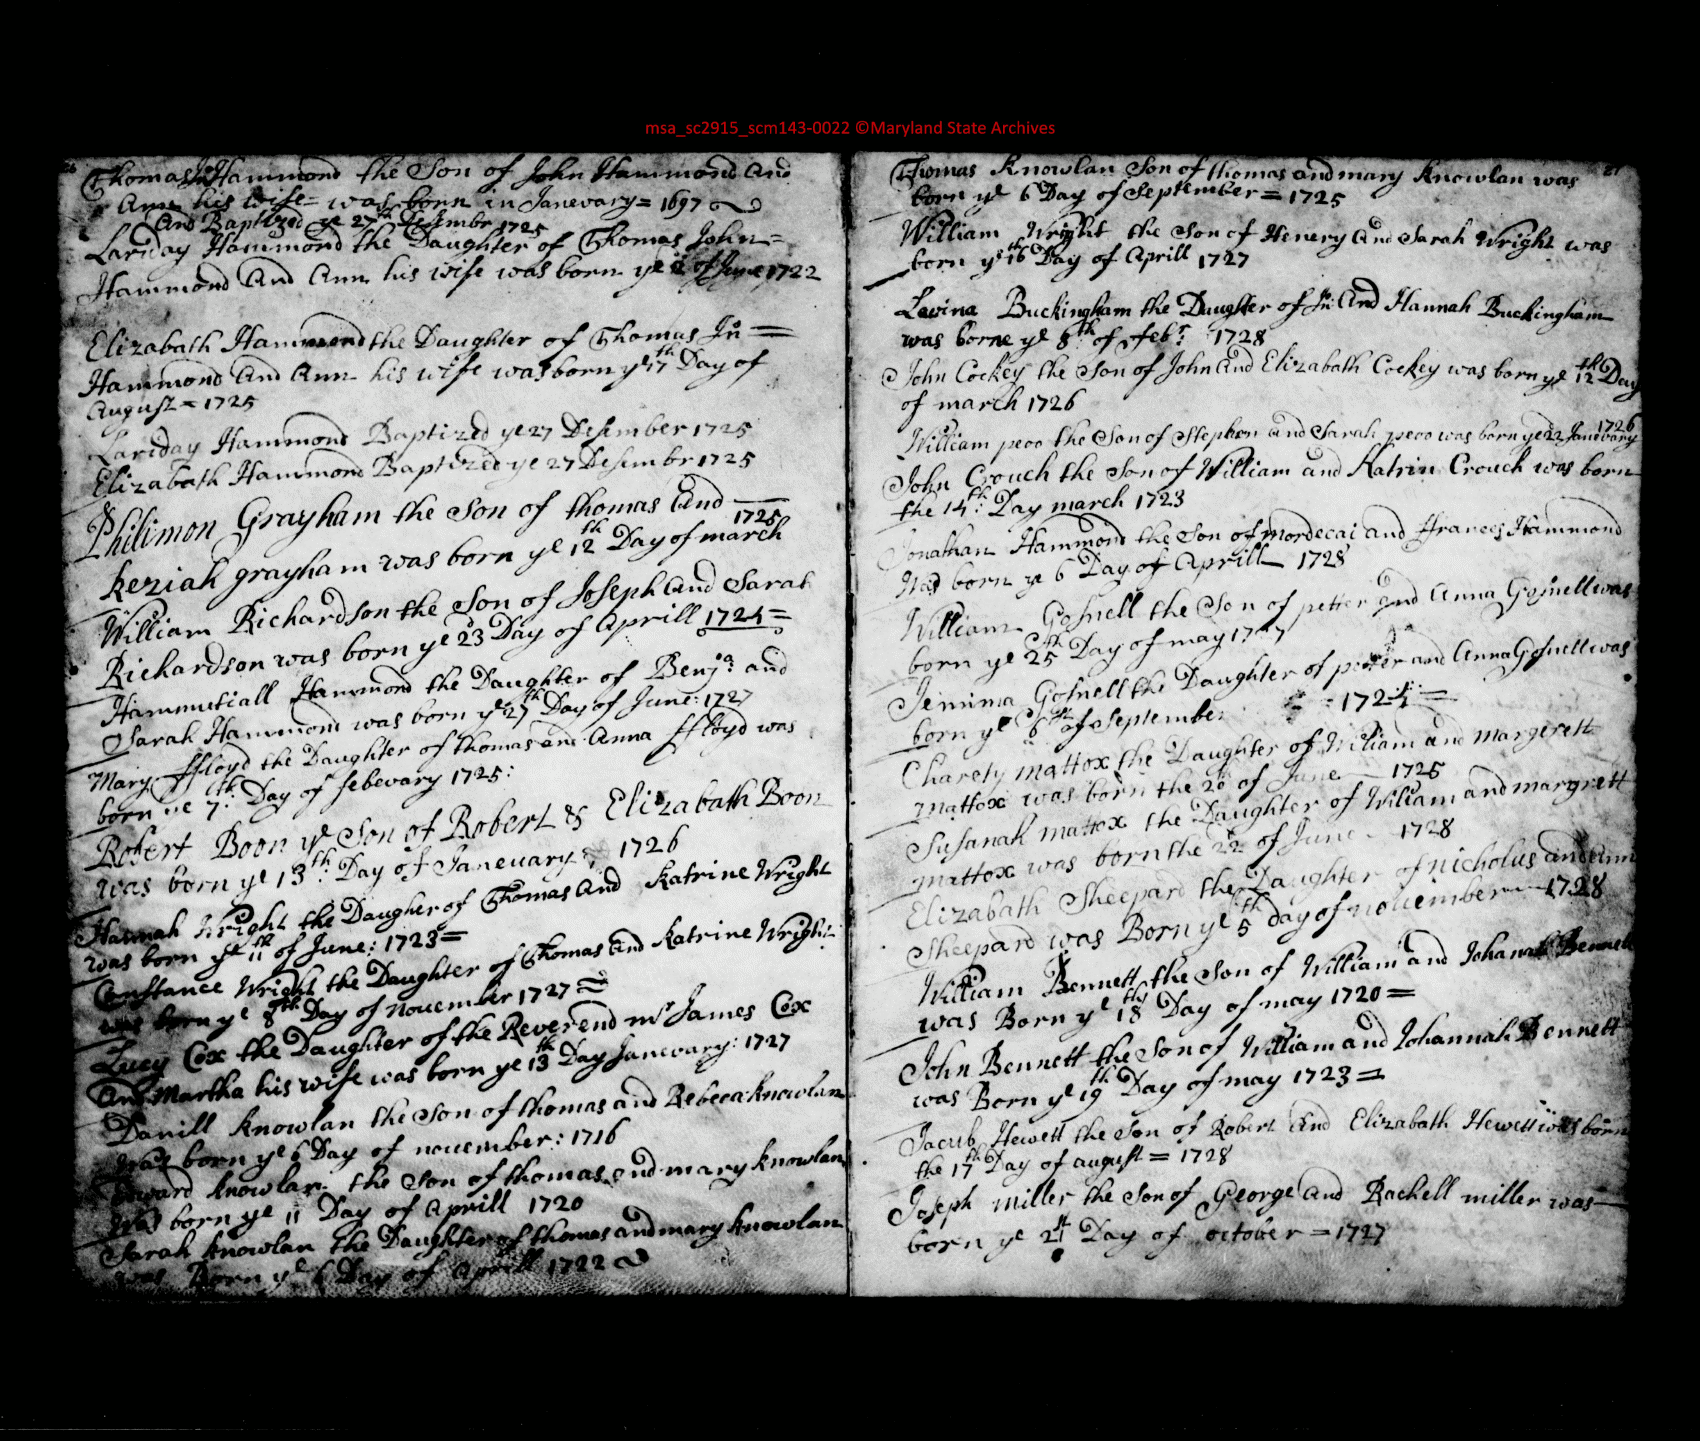 msa_sc2915_scm143-0022 ©Maryland State Archives
Thomas Jn Hammond the Son of John Hammond And
Ann his wife = was born in Janevary = 1697
And Baptized ye 27th Desembr 1725
Lariday Hammond the Daughter of Thomas John=
Hammond And Ann his wife was born ye of June 1722
Elizabath Hammond the Daughter of Thomas Jn =
Hammond And Ann his wife was born ye 17th Day of
August = 1725
Lariday Hammond Baptized ye 27 Desember 1725
Elizabath Hammond Baptized ye 27 Desembr 1725
Philimon Grayham the Son of thomas And
1725
Keziah grayham was born ye 12th Day of march
William Richardson the Son of Joseph And Sarah
Richardson was born ye 23 Day of Aprill 1724=
Hammutiall Hammond the Daughter of Benja: and
Sarah Hammond was born ye 27th Day of June: 1727
Mary ffloyd the Daughter of thomas and Anna ffloyd was
born ye 7th: Day of febevary 1725:
Robert Boon ye Son of Robert & Elizabath Boon
was born ye 13th: Day of Janeuary 1726
Hannah Wright the Daugher of Thomas And Katrine Wright
was born ye 11th of June: 1723=
Constance Wright the Daughter of Thomas and Katrine Wright
was born ye 8th Day of November 1727=
Lucy Cox the Daughter of the Reverend mr James Cox
And Martha his wife was born ye 13th Day Janevary: 1727
Danill Knowlan the Son of thomas and Rebecca Knowlan
Was born ye 6 Day of november: 1716
Edward Knowlan the Son of thomas and mary Knowlan
Was born ye 11 Day of Aprill 1720
Sarah Knowlan the Daughter of thomas and mary Knowlan
was Born ye 6 Day of Aprill 1722
27
Thomas Knowlan Son of thomas and mary Knowlan was
born ye 6 Day of September = 1725
William Wright the Son of Henery And Sarah Wright was
born ye 16th Day of Aprill 1727
Lavina Buckingham the Daughter of Jn: And Hannah Buckingham
was borne ye 8th of Febr: 1728
John Cockey the Son of John And Elizabath Cockey was born ye 12th Day
of march 1726
1726
William peco the Son of Stephen and Sarah peco was born ye 22 Janevary
John Crouch the Son of William and Katrin Crouch was born
the 14th: Day march 1723
Jonathan Hammond the Son of mordecai and ffrances Hammond
Was born ye 6 Day of Aprill 1728
William Gosnell the Son of petter and Anna Gosnell was
born ye 25th Day of may 17 7
Jemima Gosnell the Daughter of petter and Anna Gosnell was
born ye 6th of September 1724 =
Charety mattox the Daughter of William and margerett
mattox was born the 20 of June 1725
Susanah mattox the Daughter of William and margrett
mattox was born the 22 of June 1728
Elizabath Sheepard the Daughter of nicholus and ann
Sheepard was Born ye 5th day of november 1728
William Bennett the Son of William and Johannah Bennett
was Born ye 18th Day of may 1720 =
John Bennett the Son of William and Johannah Bennett
was Born ye 19th Day of may 1723 =
Jacub Hewett the Son of Robert And Elizabath Hewett was born
the 17th Day of august = 1728
Joseph miller the Son of George And Rachell miller was
born ye 21 Day of october = 1727